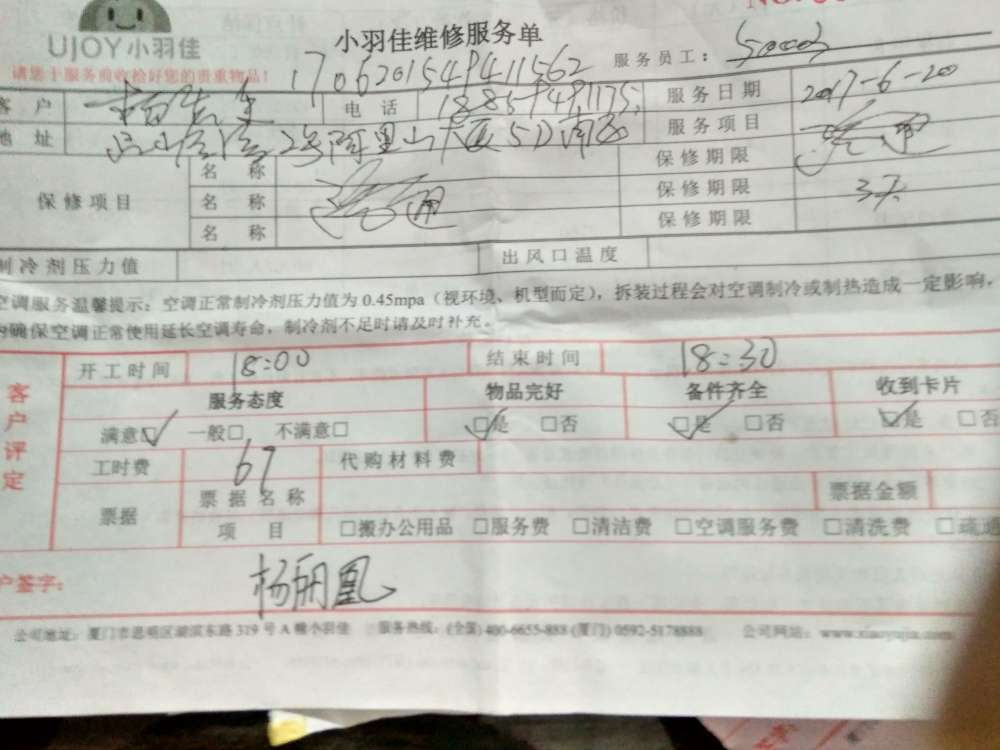 UJOY小羽佳
小羽佳维修服务单
请您于服务前收检好您的贵重物品!
1706201549411562
服务员工:
客户
电话
服务日期 2017-6-20
地址 2号阿里山大厦5D
服务项目
保修项目
名称
保修期限
名称
保修期限 3天
名称
保修期限
制冷剂压力值
出风口温度
空调服务温馨提示:空调正常制冷剂压力值为0.45mpa(视环境、机型而定),拆装过程会对空调制冷或制热造成一定影响,
确保空调正常使用延长空调寿命,制冷剂不足时请及时补充。
客户评定
开工时间 18:00 结束时间 18:30
服务态度 物品完好 备件齐全 收到卡片
满意☑ 一般□ 不满意□ ☑是 □否 ☑是 □否 ☑是 □否
工时费 67 代购材料费
票据 票据名称 票据金额
项目 □搬办公用品 □服务费 □清洁费 □空调服务费 □清洗费 □疏通
户签字: 杨丽凰
公司地址:厦门市思明区湖滨东路319号A幢小羽佳 服务热线:(全国)400-6655-888(厦门)0592-5178888 公司网站:www.xiaoyujia.com